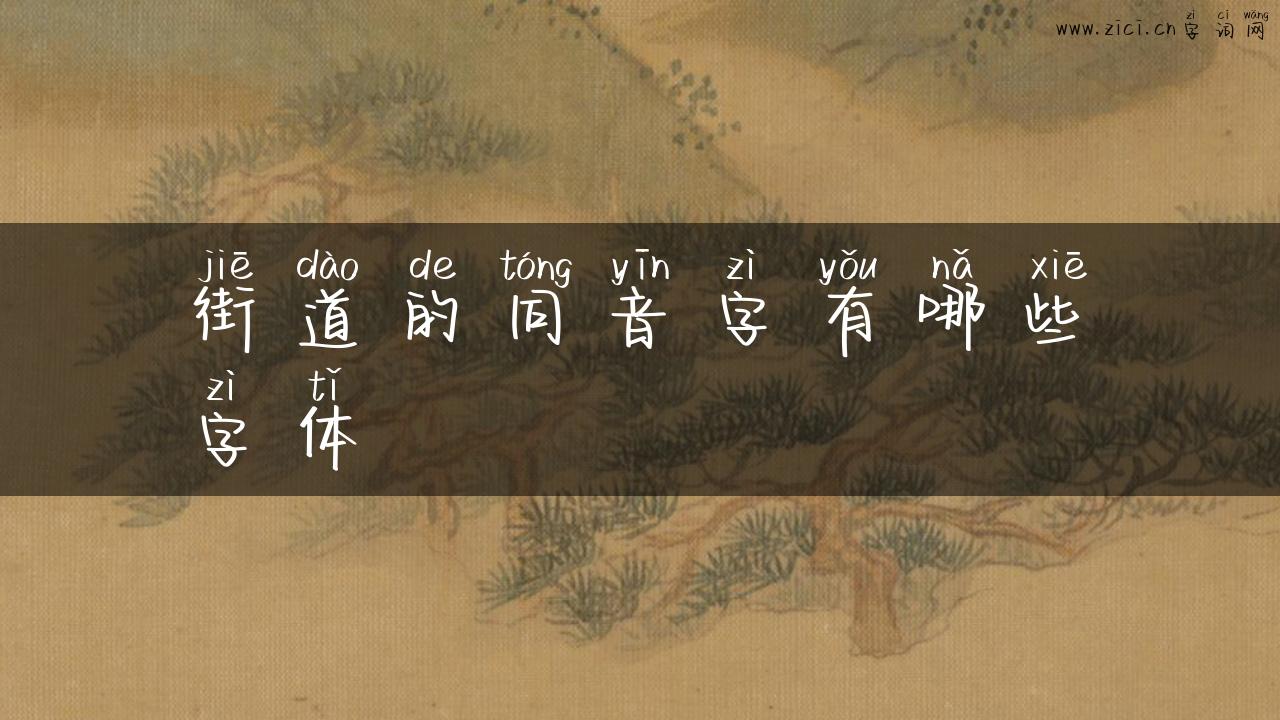 zì cí wǎng
www.zīcī.cn 字词网
jiē dào de tóng yīn zì yǒu nǎ xiē
街道的同音字有哪些
zì tǐ
字体